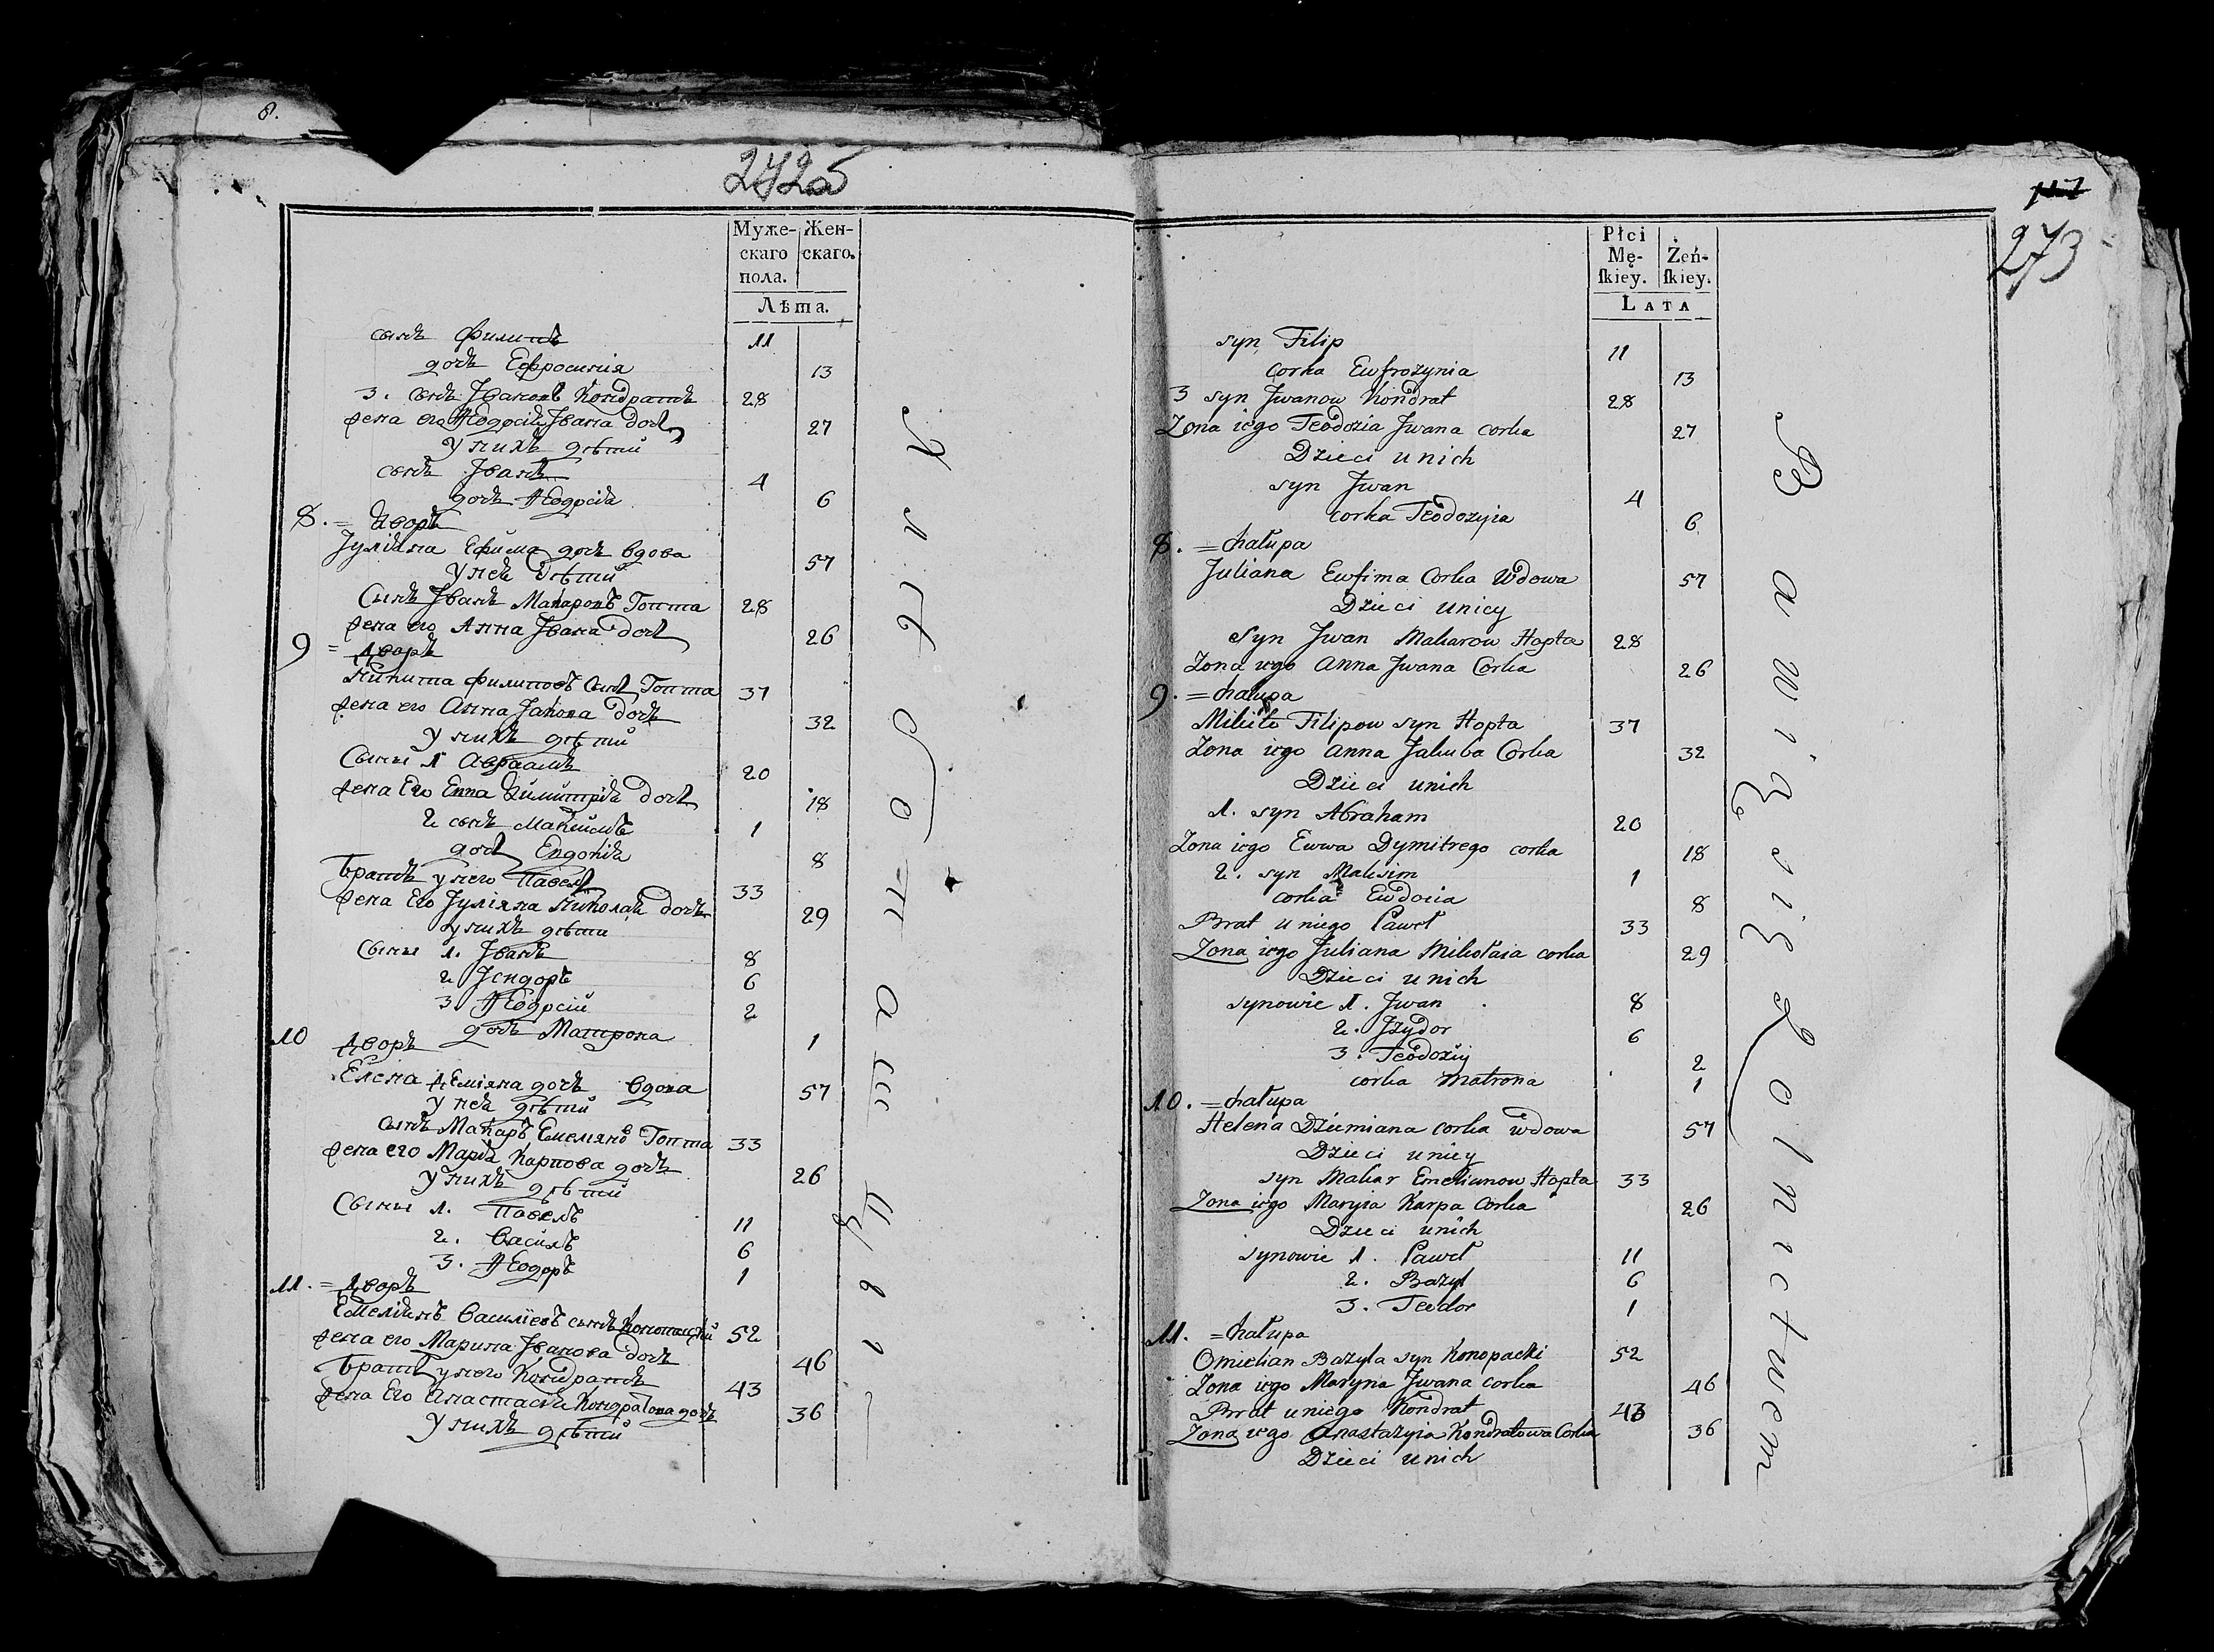 8.
272б
Муже- Жен-
скаго скаго.
пола.
Лѣта.
сынъ Филипъ 11
дочь Ефросинія 13
3. сынъ Јвановъ Кондратъ 28
жена его Ѳеодосія Јвана дочь 27
У нихъ дѣти
сынъ Јванъ 4
дочь Ѳеодосія 6
8. = Дворъ
Јуліяна Ефима дочь вдова 57
У ней дѣти
Сынъ Јванъ Макаровъ Гопта 28
жена его Анна Јвана дочь 26
9 = Дворъ
Никита Филиповъ сынъ Гопта 37
жена его Анна Јакова дочь 32
У нихъ дѣти
Сыны 1 Авраамъ 20
жена Его Евва Димитрія дочь 18
2 сынъ Максимъ 1
дочь Евдокія 8
Братъ у него Павелъ 33
жена Его Јуліяна Николая дочь 29
у нихъ дѣти
Сыны 1. Јванъ 8
2 Јсидоръ 6
3 Ѳеодосій 2
дочь Матрона 1
10 Дворъ
Елена Деміяна дочь вдова 57
У ней дѣти
сынъ Макаръ Емеляновъ Гопта 33
жена его Марія Карпова дочь 26
У нихъ дѣти
Сыны 1. Павелъ 11
2. Василъ 6
3. Ѳеодоръ 1
11. = Дворъ
Емеліянъ Василіевъ сынъ Конопацкій 52
жена его Марина Јванова дочь 46
Братъ у него Кондратъ 43
жена Его Анастасія Кондратова дочь 36
У нихъ дѣти
273
Płci
Mę- Żeń-
ſkiey. ſkiey.
LATA
syn Filip 11
Corka Ewfrozynia 13
3 syn Jwanow Kondrat 28
Zona iego Teodozia Jwana corka 27
Dzieci unich
syn Jwan 4
corka Teodozyia 6
8. = chałupa
Juliana Ewfima Corka Wdowa 57
Dzieci unicy
Syn Jwan Makarow Hopta 28
Zona iego Anna Jwana Corka 26
9. = chałupa
Mikita Filipow syn Hopta 37
Zona iego Anna Jakuba Corka 32
Dzieci unich
1. syn Abraham 20
Zona iego Ewwa Dymitrego corka 18
2. syn Maksim 1
corka Ewdocia 8
Brat uniego Paweł 33
Zona iego Juliana Mikołaia corka 29
Dzieci unich
synowie 1. Jwan 8
2. Jzydor 6
3. Teodozij 2
corka Matrona 1
10. = chałupa
Helena Dziemiana corka wdowa 57
Dzieci unicy
syn Makar Emelianow Hopta 33
Zona iego Maryia Karpa Corka 26
Dzieci unich
synowie 1. Paweł 11
2. Bazyl 6
3. Teodor 1
11. = chałupa
Omielian Bazyla syn Konopacki 52
Zona iego Maryna Jwana corka 46
Brat uniego Kondrat 43
Zona iego Anastazyia Kondratowa Corka 36
Dzieci unich
Bawią się Rolnictwem